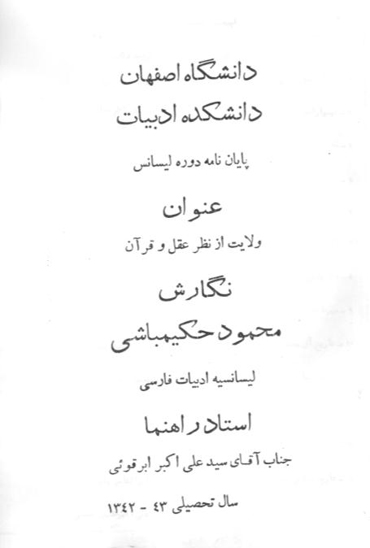 دانشگاه اصفهان
دانشکده ادبیات
پایان نامه دوره لیسانس
عنوان
ولایت از نظر عقل و قرآن
نگارش
محمود حکیمباشی
لیسانسیه ادبیات فارسی
استاد راهنما
جناب آقای سید علی اکبر ابرقوئی
سال تحصیلی ۴۳ - ۱۳۴۲